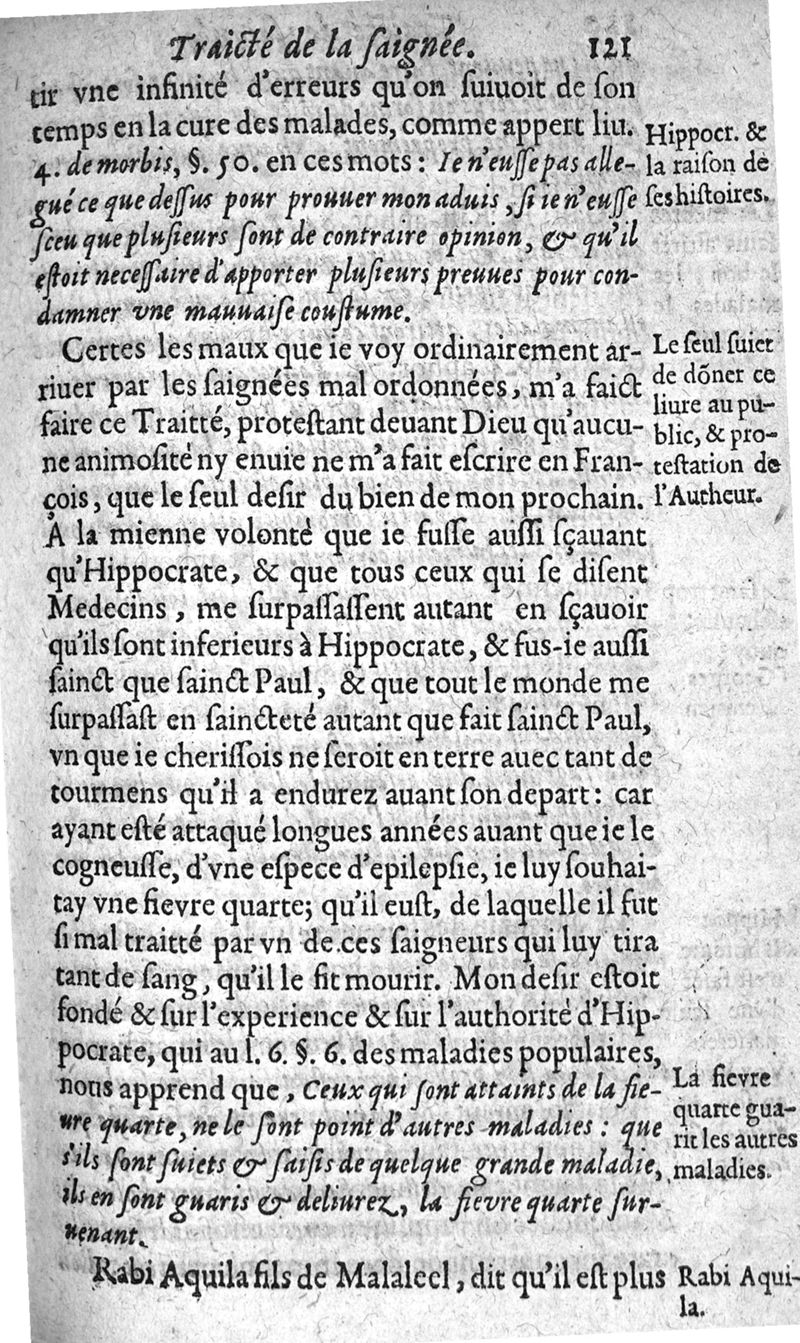 Traicté de la ſaignée. 121
tir vne infinité d'erreurs qu'on ſuiuoit de ſon
temps en la cure des malades, comme appert liu.
4. de morbis, §. 50. en ces mots : Ie n'euſſe pas alle-
gué ce que deſſus pour prouuer mon aduis, ſi ie n'euſſe
ſceu que pluſieurs ſont de contraire opinion, & qu'il
eſtoit neceſſaire d'apporter pluſieurs preuues pour con-
damner vne mauuaiſe couſtume.
Hippocr. &
la raiſon de
ſes hiſtoires.
Certes les maux que ie voy ordinairement ar-
riuer par les ſaignées mal ordonnées, m'a faict
faire ce Traitté, proteſtant deuant Dieu qu'aucu-
ne animoſité ny enuie ne m'a fait eſcrire en Fran-
çois, que le ſeul deſir du bien de mon prochain.
A la mienne volonté que ie fuſſe auſſi ſçauant
qu'Hippocrate, & que tous ceux qui ſe diſent
Medecins, me ſurpaſſaſſent autant en ſçauoir
qu'ils ſont inferieurs à Hippocrate, & fus-ie auſſi
ſainct que ſainct Paul, & que tout le monde me
ſurpaſſaſt en ſaincteté autant que fait ſainct Paul,
vn que ie cheriſſois ne ſeroit en terre auec tant de
tourmens qu'il a endurez auant ſon depart : car
ayant eſté attaqué longues années auant que ie le
cogneuſſe, d'vne eſpece d'epilepſie, ie luy ſouhai-
tay vne fievre quarte; qu'il euſt, de laquelle il fut
ſi mal traitté par vn de ces ſaigneurs qui luy tira
tant de ſang, qu'il le fit mourir. Mon deſir eſtoit
fondé & ſur l'experience & ſur l'authorité d'Hip-
pocrate, qui au l. 6. §. 6. des maladies populaires,
nous apprend que, Ceux qui ſont attaints de la fie-
ure quarte, ne le ſont point d'autres maladies : que
s'ils ſont ſuiets & ſaiſis de quelque grande maladie,
ils en ſont guaris & deliurez, la fievre quarte ſur-
uenant.
Le ſeul ſuiet
de dõner ce
liure au pu-
blic, & pro-
teſtation de
l'Autheur.
La fievre
quarte gua-
rit les autres
maladies.
Rabi Aquila fils de Malaleel, dit qu'il eſt plus
Rabi Aqui-
la.